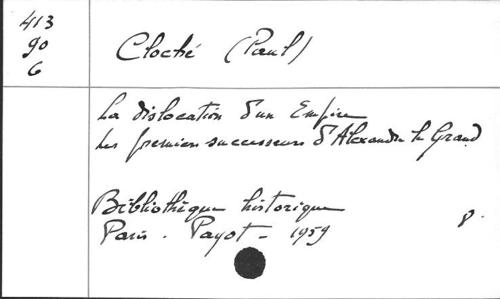 413
90
6
Cloché (Paul)
La dislocation d'un Empire
Les premiers successeurs d'Alexandre le Grand
Bibliothèque historique
Paris. Payot - 1959
8.